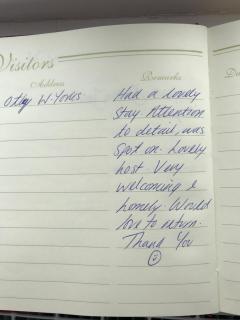 Visitors
Address
Remarks
Otley W. Yorks
Had a lovely
Stay. Attention
to detail, was
spot on. Lovely
host Very
welcoming &
homely. Would
love to return.
Thank You